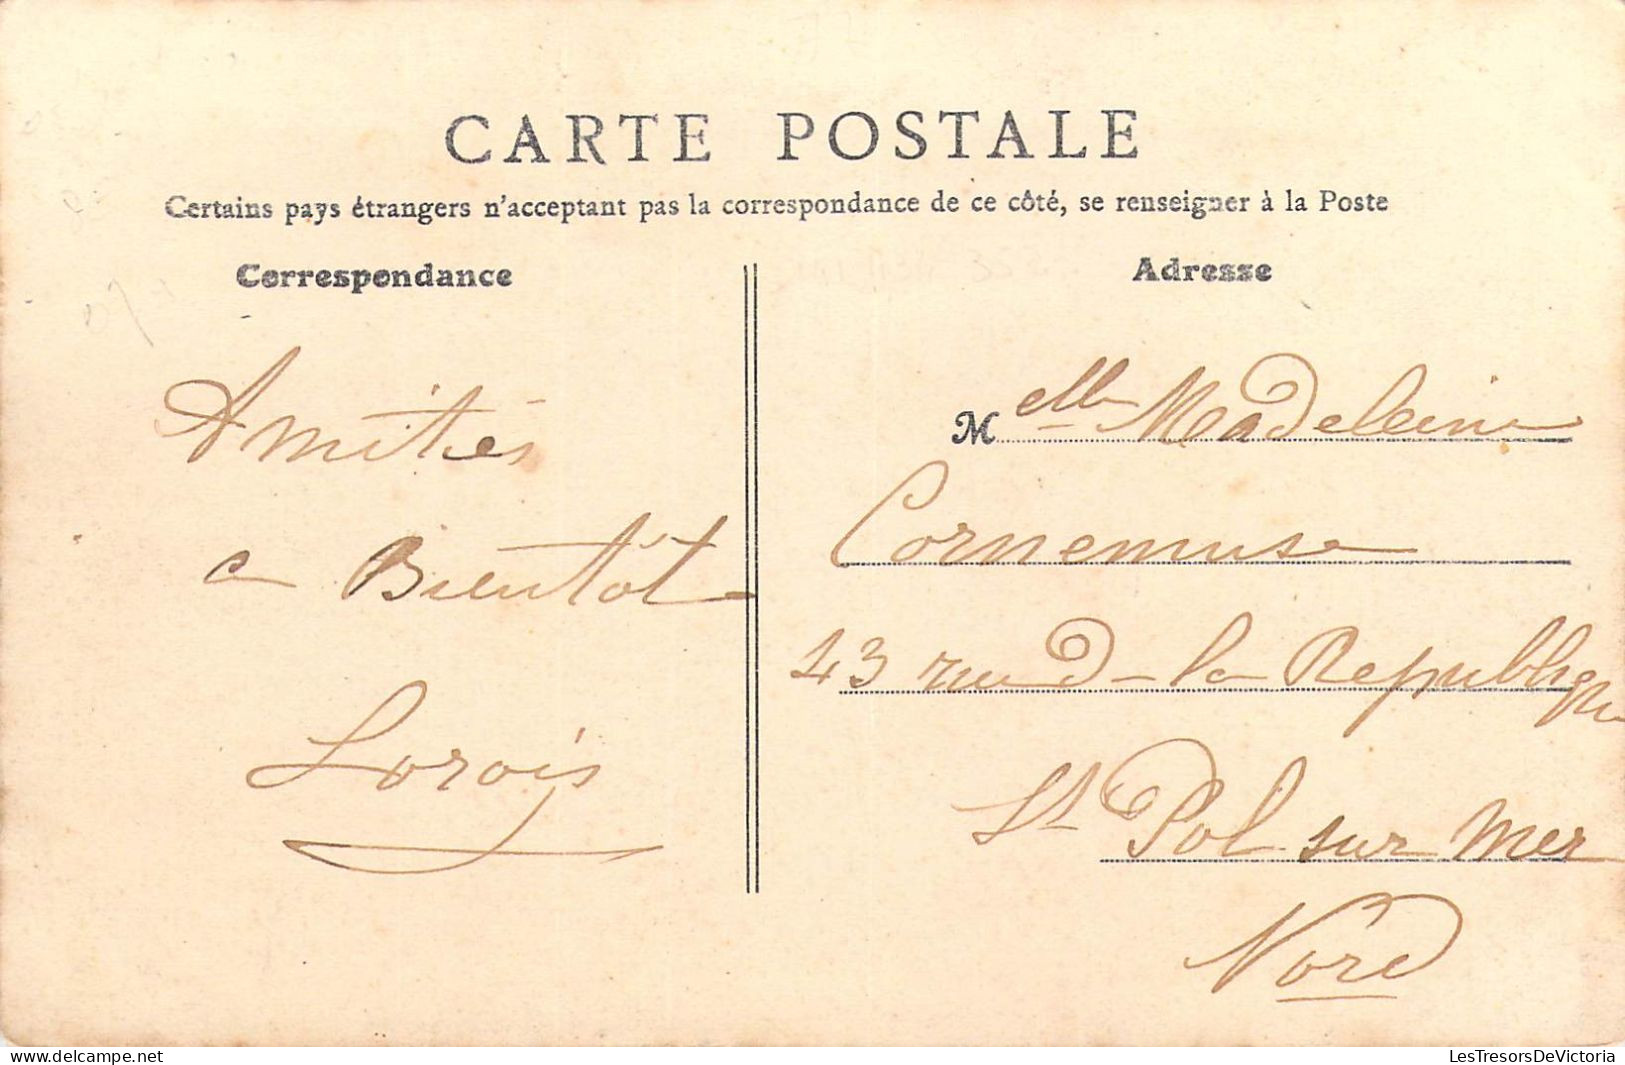 CARTE POSTALE
Certains pays étrangers n'acceptant pas la correspondance de ce côté, se renseigner à la Poste
Correspondance
Amitiés
a Bientôt
Lorois
Adresse
Melle Madeleine
Cornemuse
43 rue de la Republique
St Pol sur Mer
Nord
LesTresorsDeVictoria
www.delcampe.net